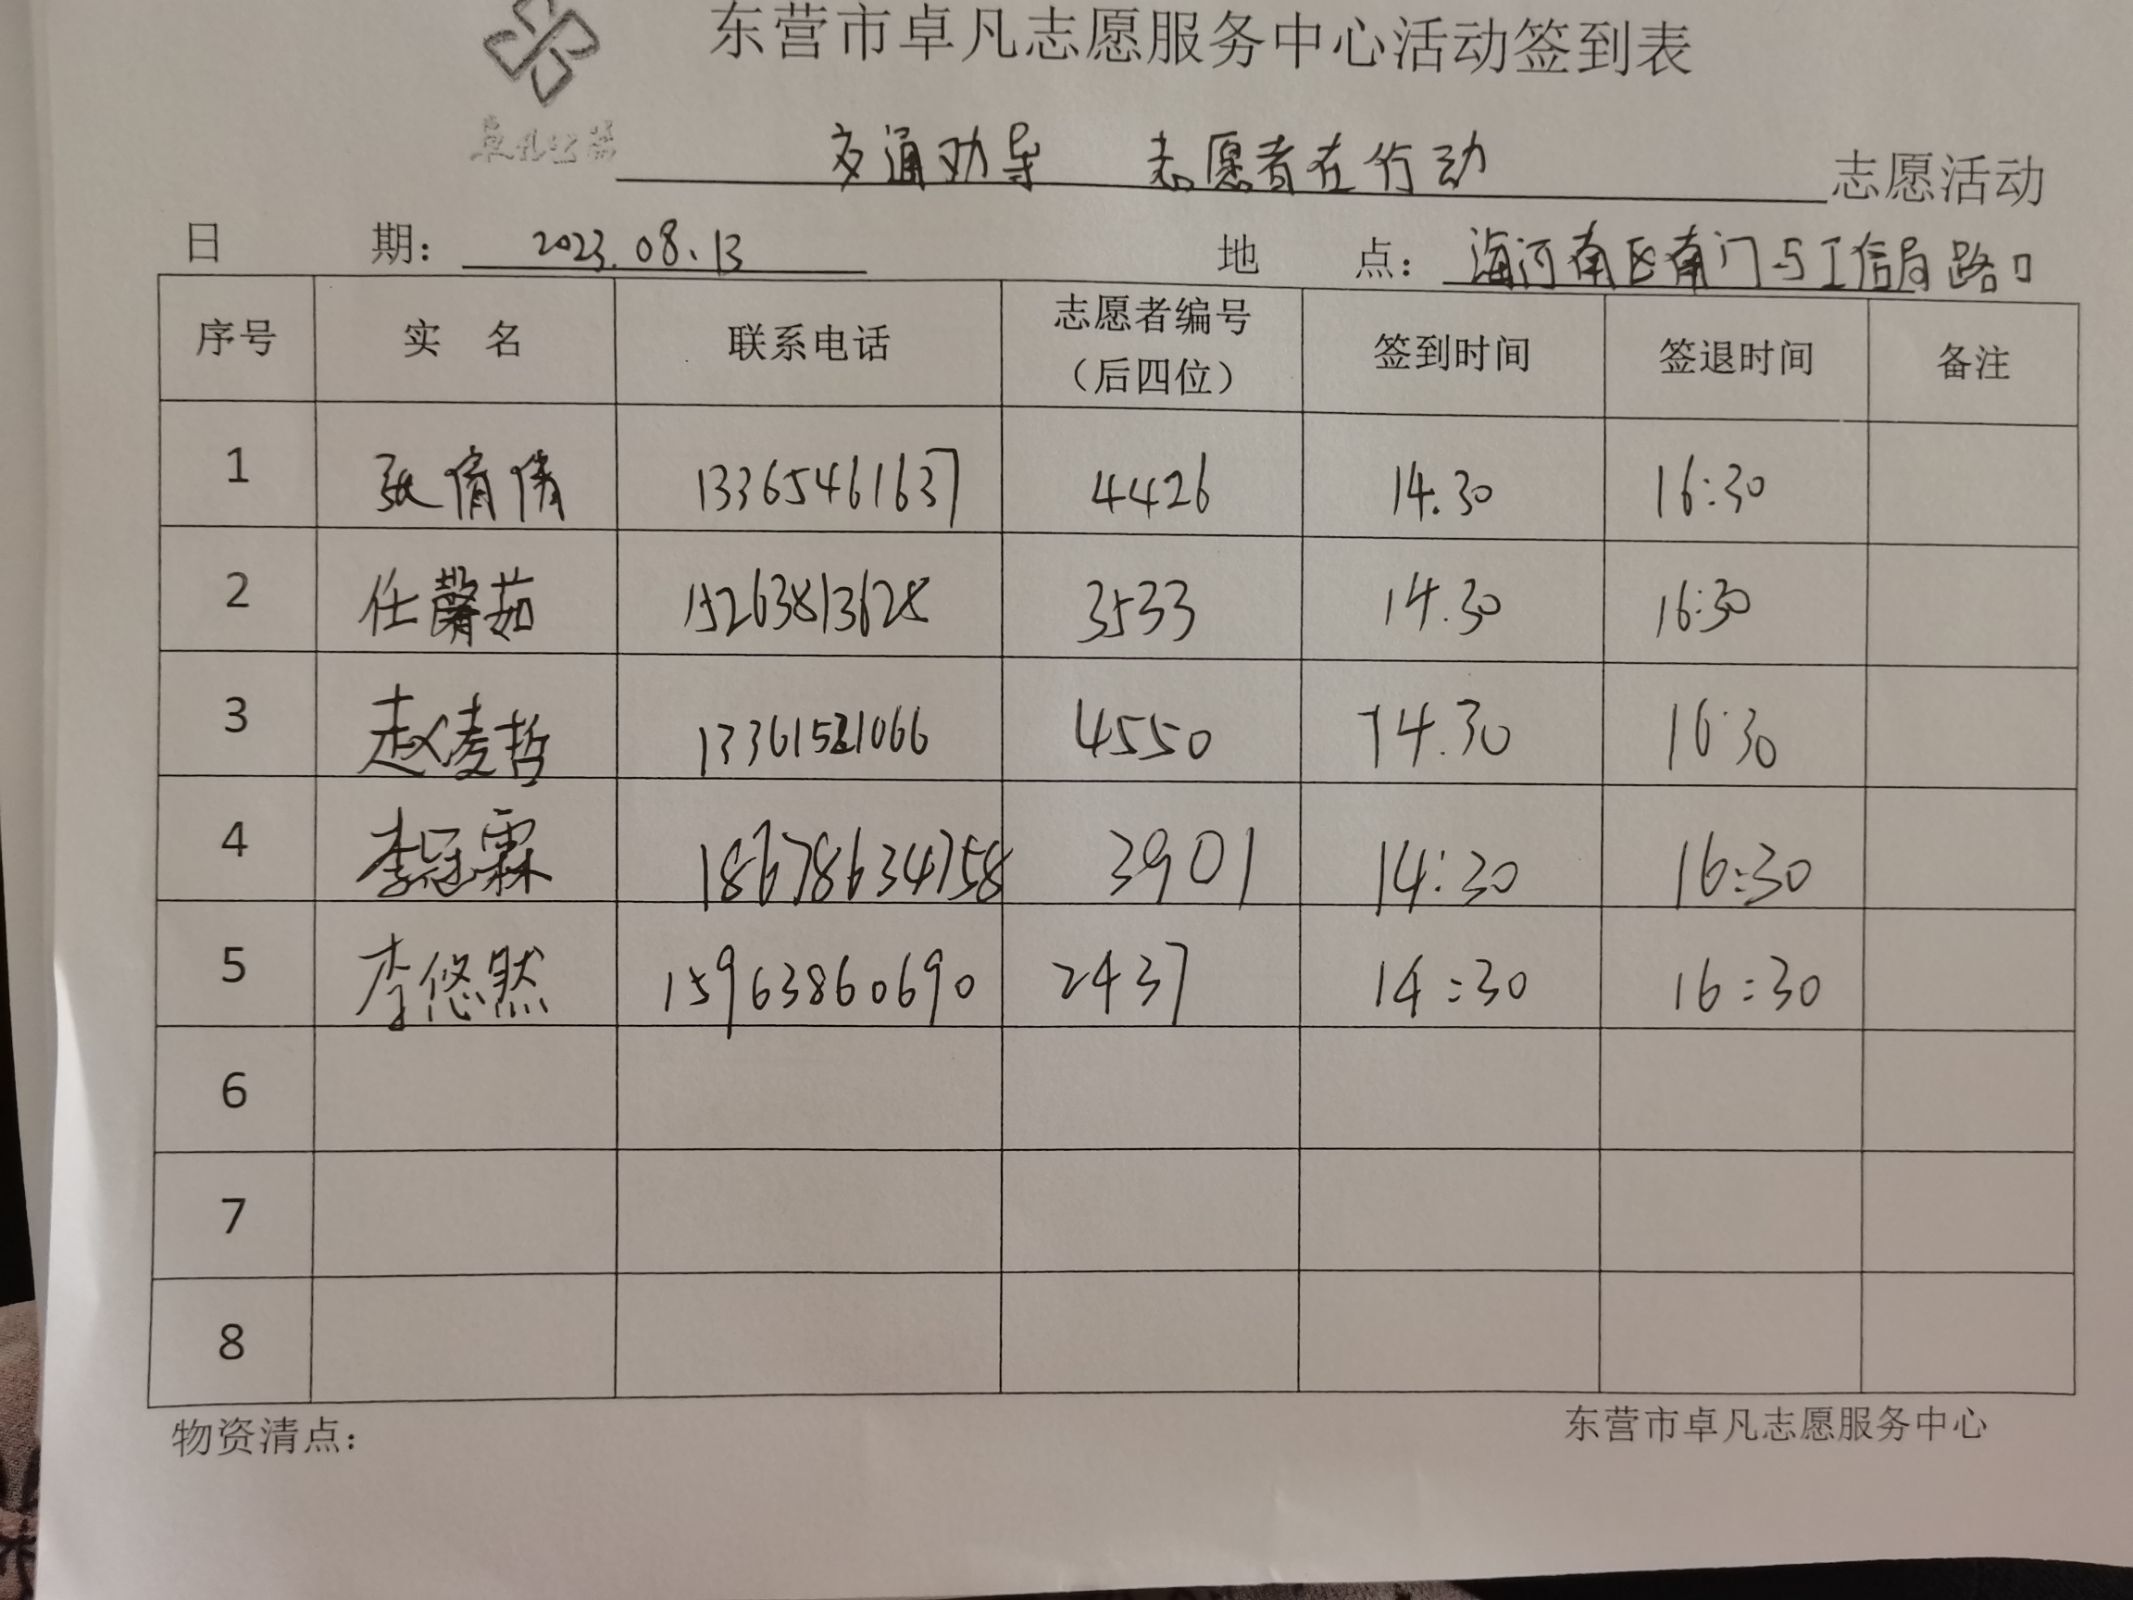 东营市卓凡志愿服务中心活动签到表
卓凡公益
交通劝导 志愿者在行动 志愿活动
日 期：2023.08.13 地 点：海河南区南门与工信局路口
序号 实 名 联系电话 志愿者编号（后四位） 签到时间 签退时间 备注
1 张倩倩 13365461637 4426 14.30 16:30
2 任馨茹 15263813628 3533 14.30 16:30
3 赵凌哲 4550 14.30 16:30
4 李冠霖 18678634758 3901 14:30 16:30
5 李悠然 15963860690 2437 14:30 16:30
6
7
8
物资清点： 东营市卓凡志愿服务中心